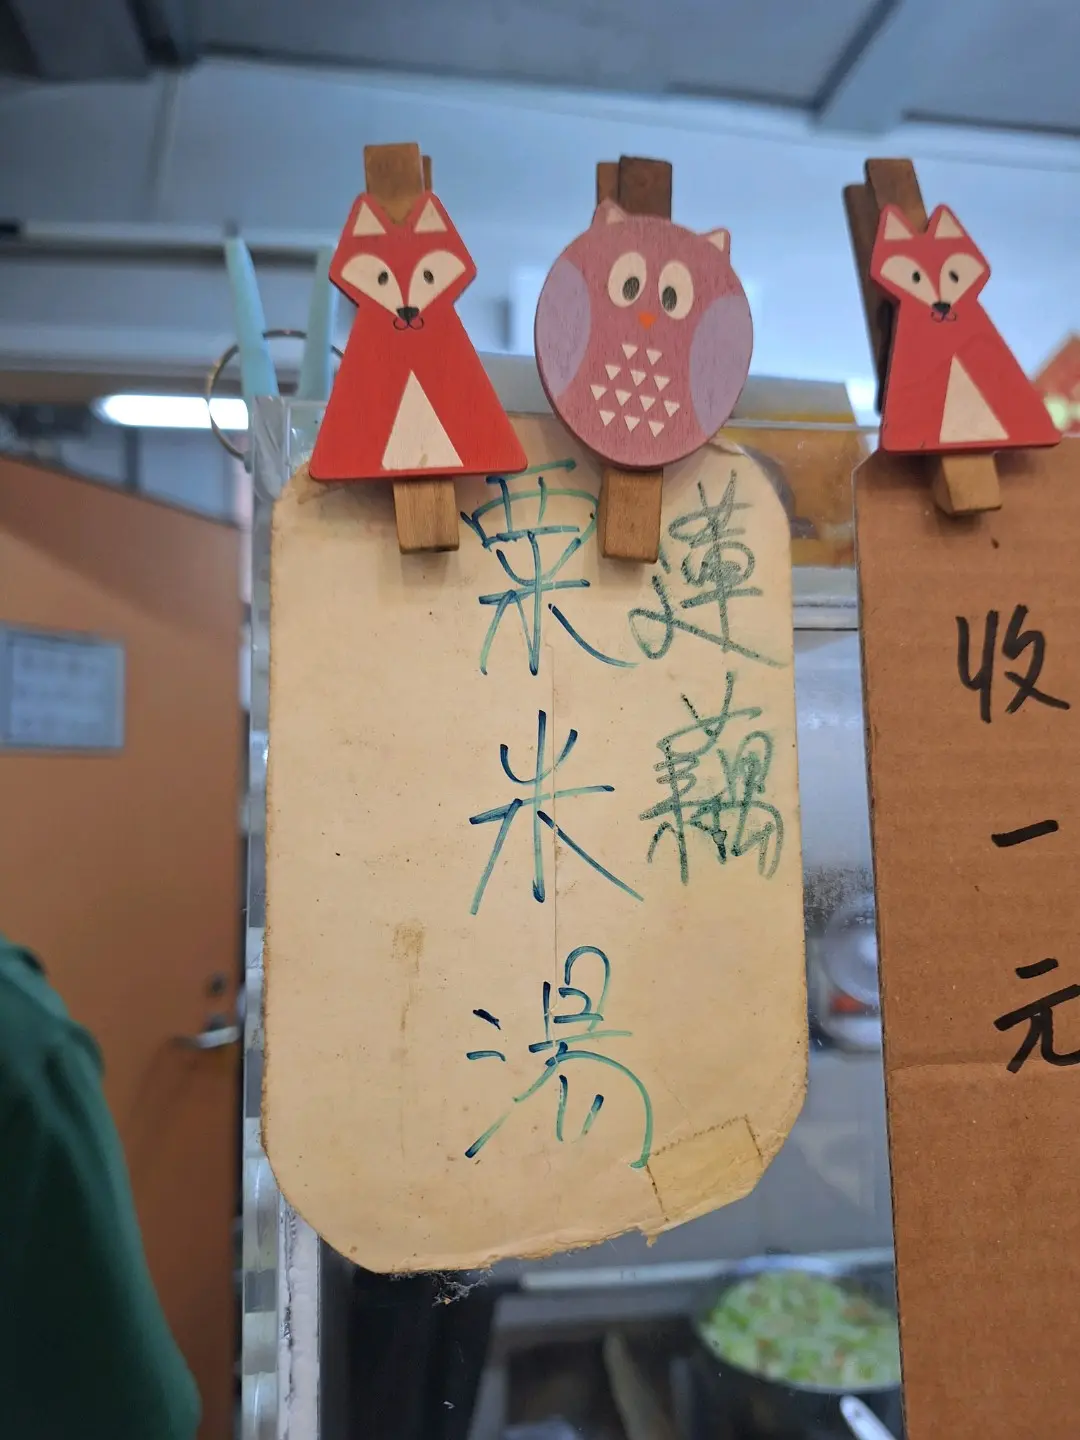 蓮藕
粟米湯
收一元